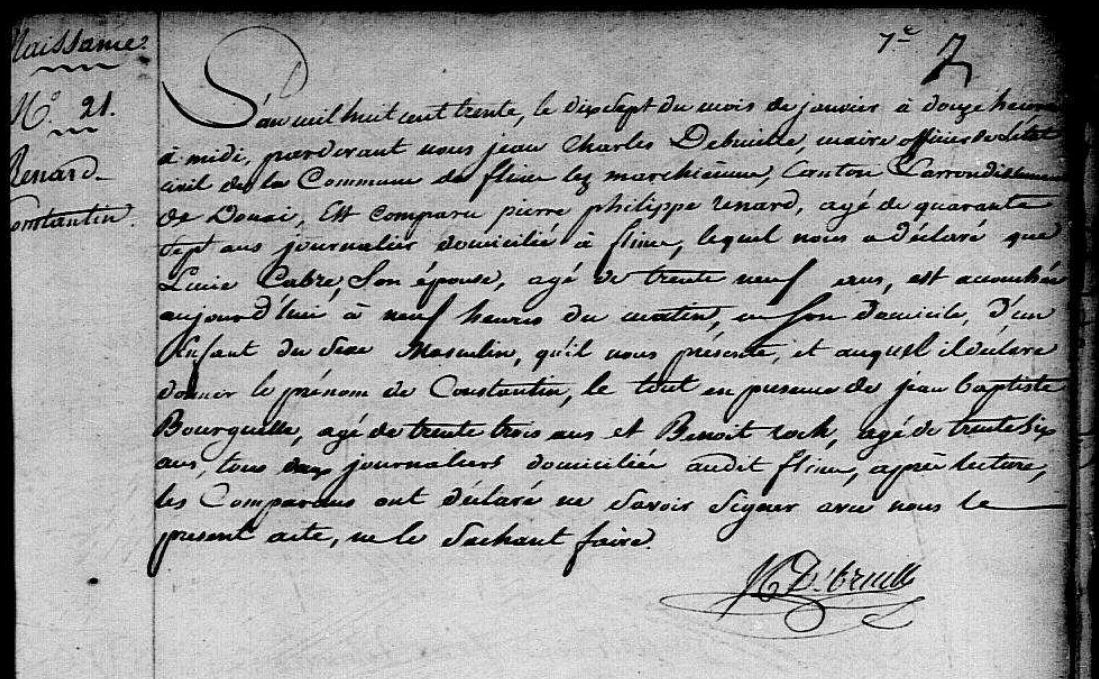 Naissance.
N.° 21.
Renard
Constantin.
7.e
L'an mil huit cent trente, le dix sept du mois de janvier à douze heures
à midi, pardevant nous jean Charles Debruille, maire officier de L'état
civil de la Commune de flines lez marchiennes, Canton L'arrondissement
de Douai, Est comparu pierre philippe renard, agé de quarante
sept ans journalier domicilié à flines, lequel nous a déclaré que
Lucie Cabre, Son épouse, agé de trente neuf ans, est accouchée
aujourd'hui à neuf heures du matin, en Son domicile, d'un
Enfant du Sexe Masculin, qu'il nous présente, et auquel il déclare
donner le prénom de Constantin, le tout en presence de jean baptiste
Bourguelle, agé de trente trois ans et Benoit rock, agé de trente Six
ans, tous deux journaliers domiciliés audit flines, après lecture,
les Comparans ont déclaré ne Savoir Signer avec nous le
present acte, ne le Sachant faire.
JC Debruille